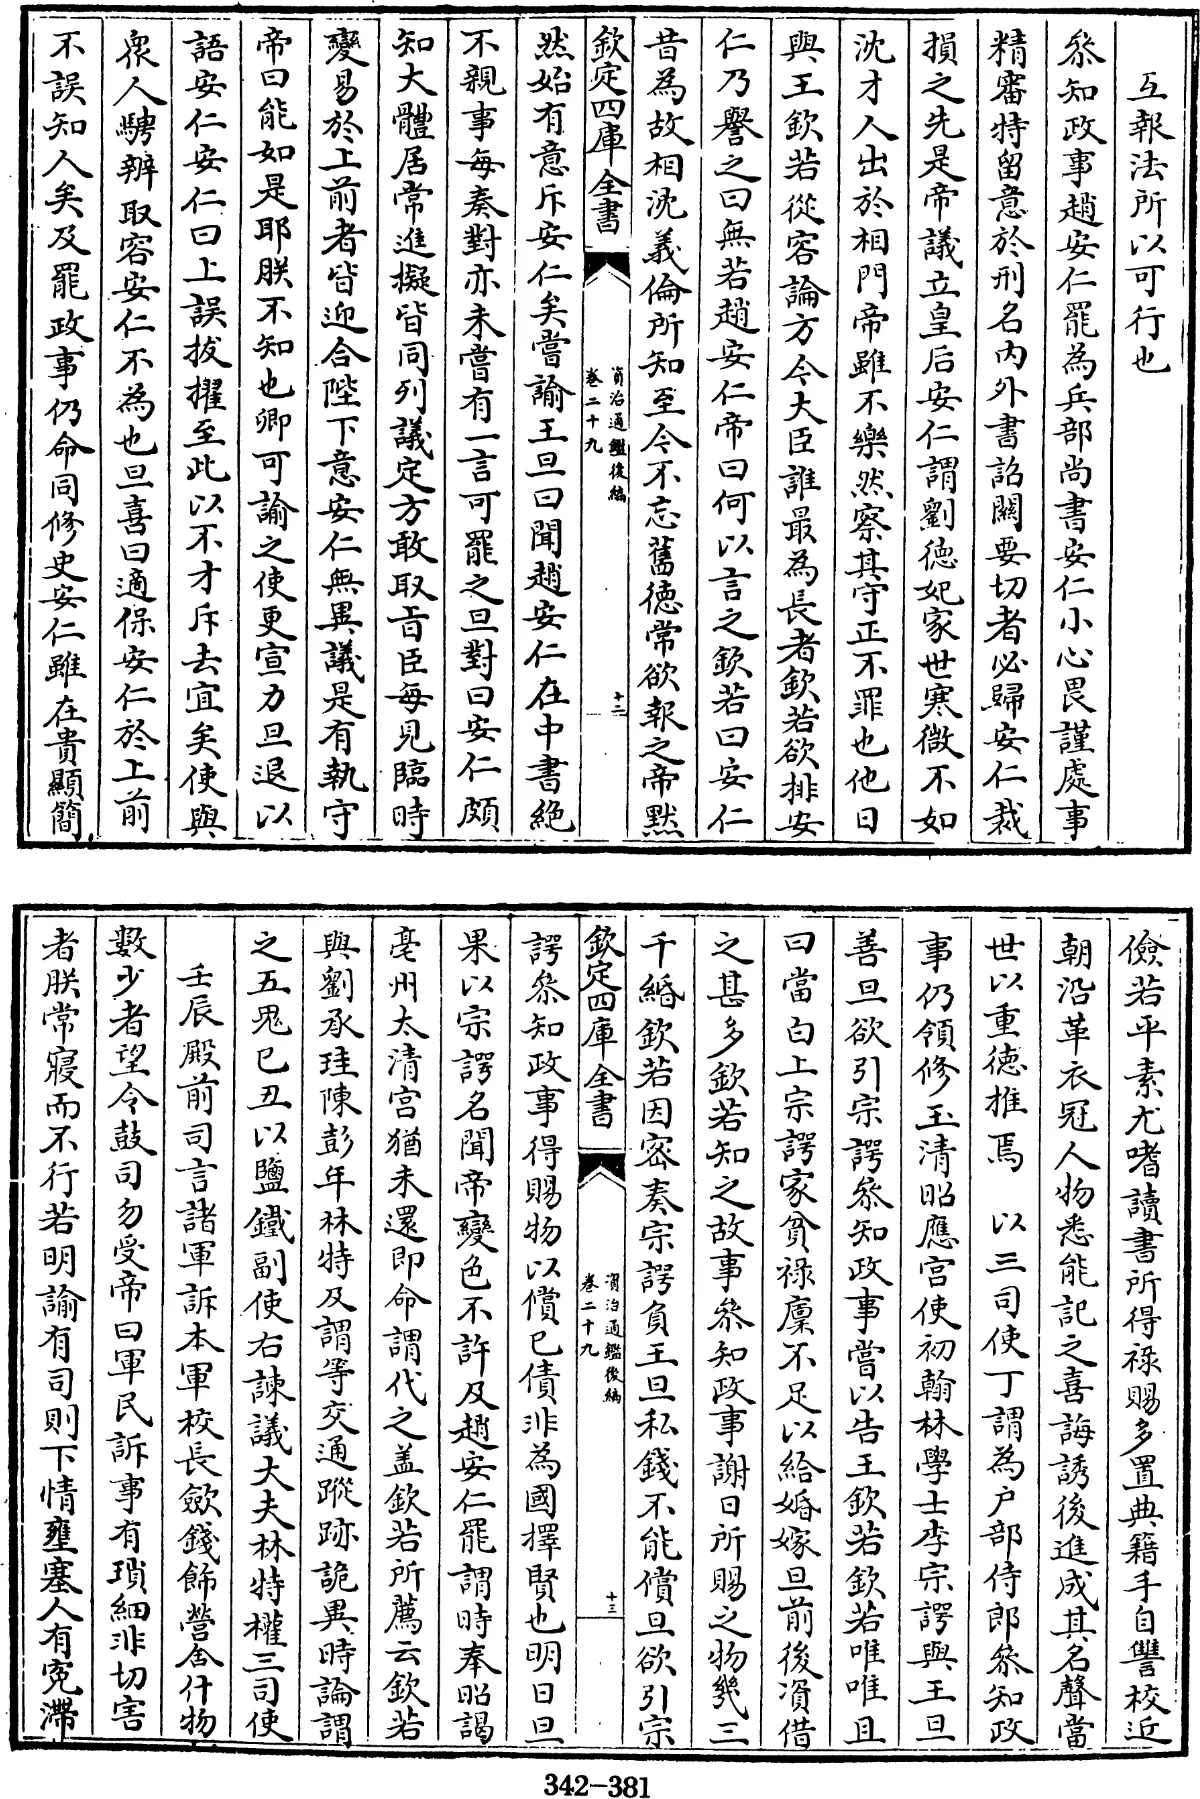 互報法所以可行也
叅知政事趙安仁罷為兵部尚書安仁小心畏謹處事
精審特留意於刑名内外書詔關要切者必歸安仁裁
損之先是帝議立皇后安仁謂劉徳妃家世寒微不如
沈才人出於相門帝雖不樂然察其守正不罪也他日
與王欽若從容論方今大臣誰最為長者欽若欲排安
仁乃譽之曰無若趙安仁帝曰何以言之欽若曰安仁
昔為故相沈義倫所知至今不忘舊徳常欲報之帝黙
欽定四庫全書
資治通鑑後編
卷二十九
十二
然始有意斥安仁矣嘗諭王旦曰聞趙安仁在中書絶
不親事每奏對亦未嘗有一言可罷之旦對曰安仁頗
知大體居常進擬皆同列議定方敢取旨臣每見臨時
變易於上前者皆迎合陛下意安仁無異議是有執守
帝曰能如是耶朕不知也卿可諭之使更宣力旦退以
語安仁安仁曰上誤拔擢至此以不才斥去宜矣使與
衆人騁辨取容安仁不為也旦喜曰適保安仁於上前
不誤知人矣及罷政事仍命同修史安仁雖在貴顯簡
儉若平素尤嗜讀書所得祿賜多置典籍手自讐校近
朝沿革衣冠人物悉能記之喜誨誘後進成其名聲當
世以重徳推焉　以三司使丁謂為户部侍郎叅知政
事仍領修玉清昭應宫使初翰林學士李宗諤與王旦
善旦欲引宗諤叅知政事嘗以告王欽若欽若唯唯旦
曰當白上宗諤家貧祿廩不足以給婚嫁旦前後資借
之甚多欽若知之故事叅知政事謝日所賜之物幾三
千緡欽若因密奏宗諤負王旦私錢不能償旦欲引宗
欽定四庫全書
資治通鑑後編
卷二十九
十三
諤叅知政事得賜物以償已債非為國擇賢也明日旦
果以宗諤名聞帝變色不許及趙安仁罷謂時奉昭謁
亳州太清宫猶未還即命謂代之盖欽若所薦云欽若
與劉承珪陳彭年林特及謂等交通蹤跡詭異時論謂
之五鬼己丑以鹽鐵副使右諫議大夫林特權三司使
壬辰殿前司言諸軍訴本軍校長歛錢飾營舍什物
數少者望令鼓司勿受帝曰軍民訴事有瑣細非切害
者朕常寢而不行若明諭有司則下情壅塞人有寃滯
342-381